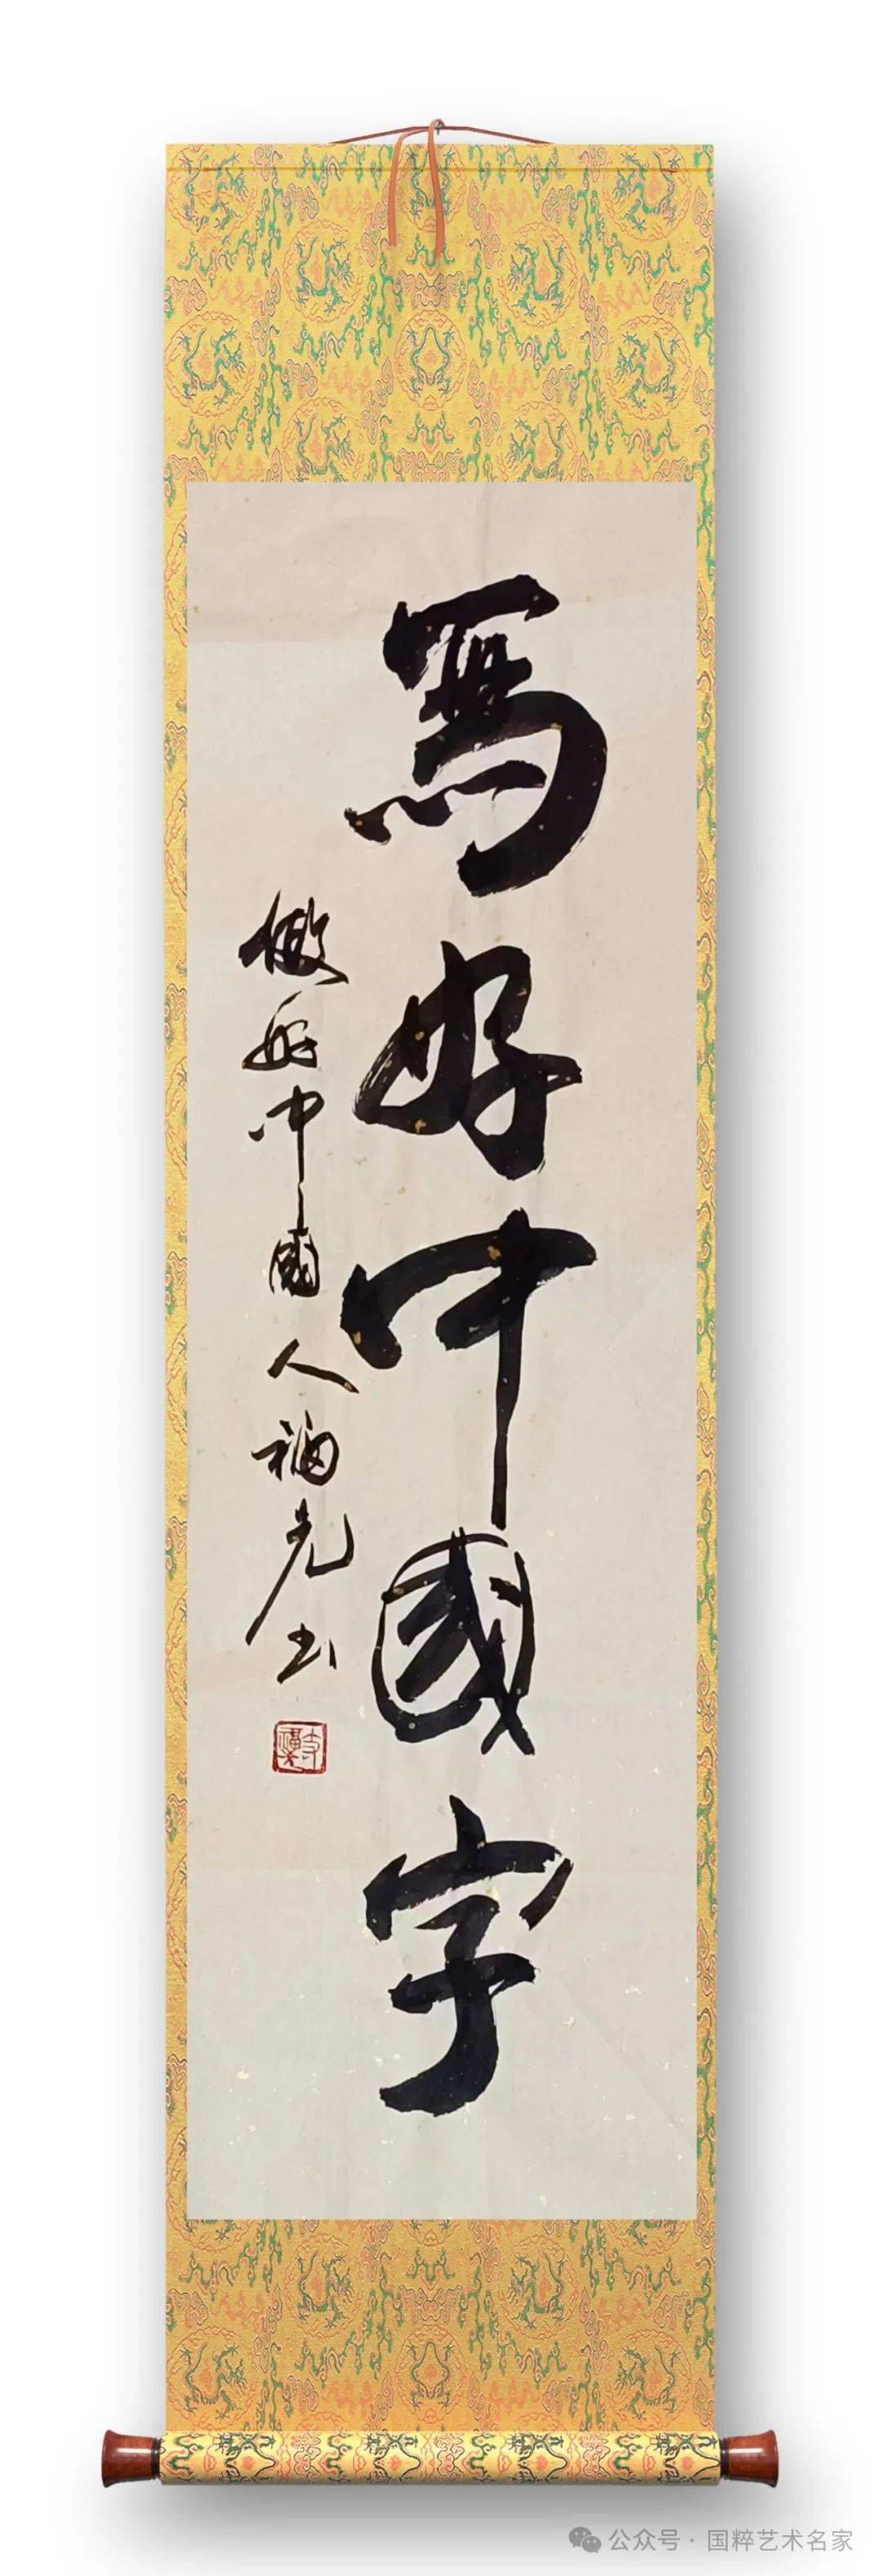 寫好中國字
做好中國人福先书
公众号·国粹艺术名家